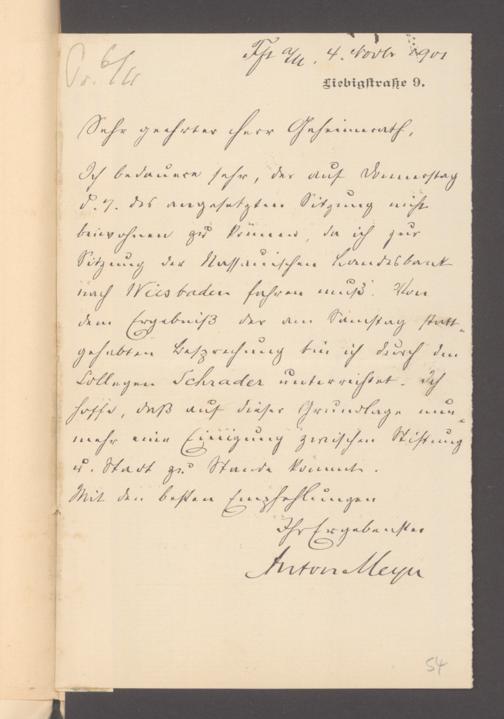 Ffr a/M. 4. Novbr 1901
Liebigstraße 9.
Sehr geehrter Herr Geheimerath,
Ich bedauere sehr, der auf Donnerstag
d. 7. ds angesetzten Sitzung nicht
beiwohnen zu können, da ich zur
Sitzung der Nassauischen Landesbank
nach Wiesbaden fahren muß. Von
dem Ergebniß der am Samstag statt-
gehabten Besprechung bin ich durch den
Collegen Schrader unterrichtet. Ich
hoffe, daß auf dieser Grundlage nun-
mehr eine Einigung zwischen Stiftung
u. Stadt zu Stande kommt.
Mit den besten Empfehlungen
Ihr Ergebenster
Anton Meyer
54